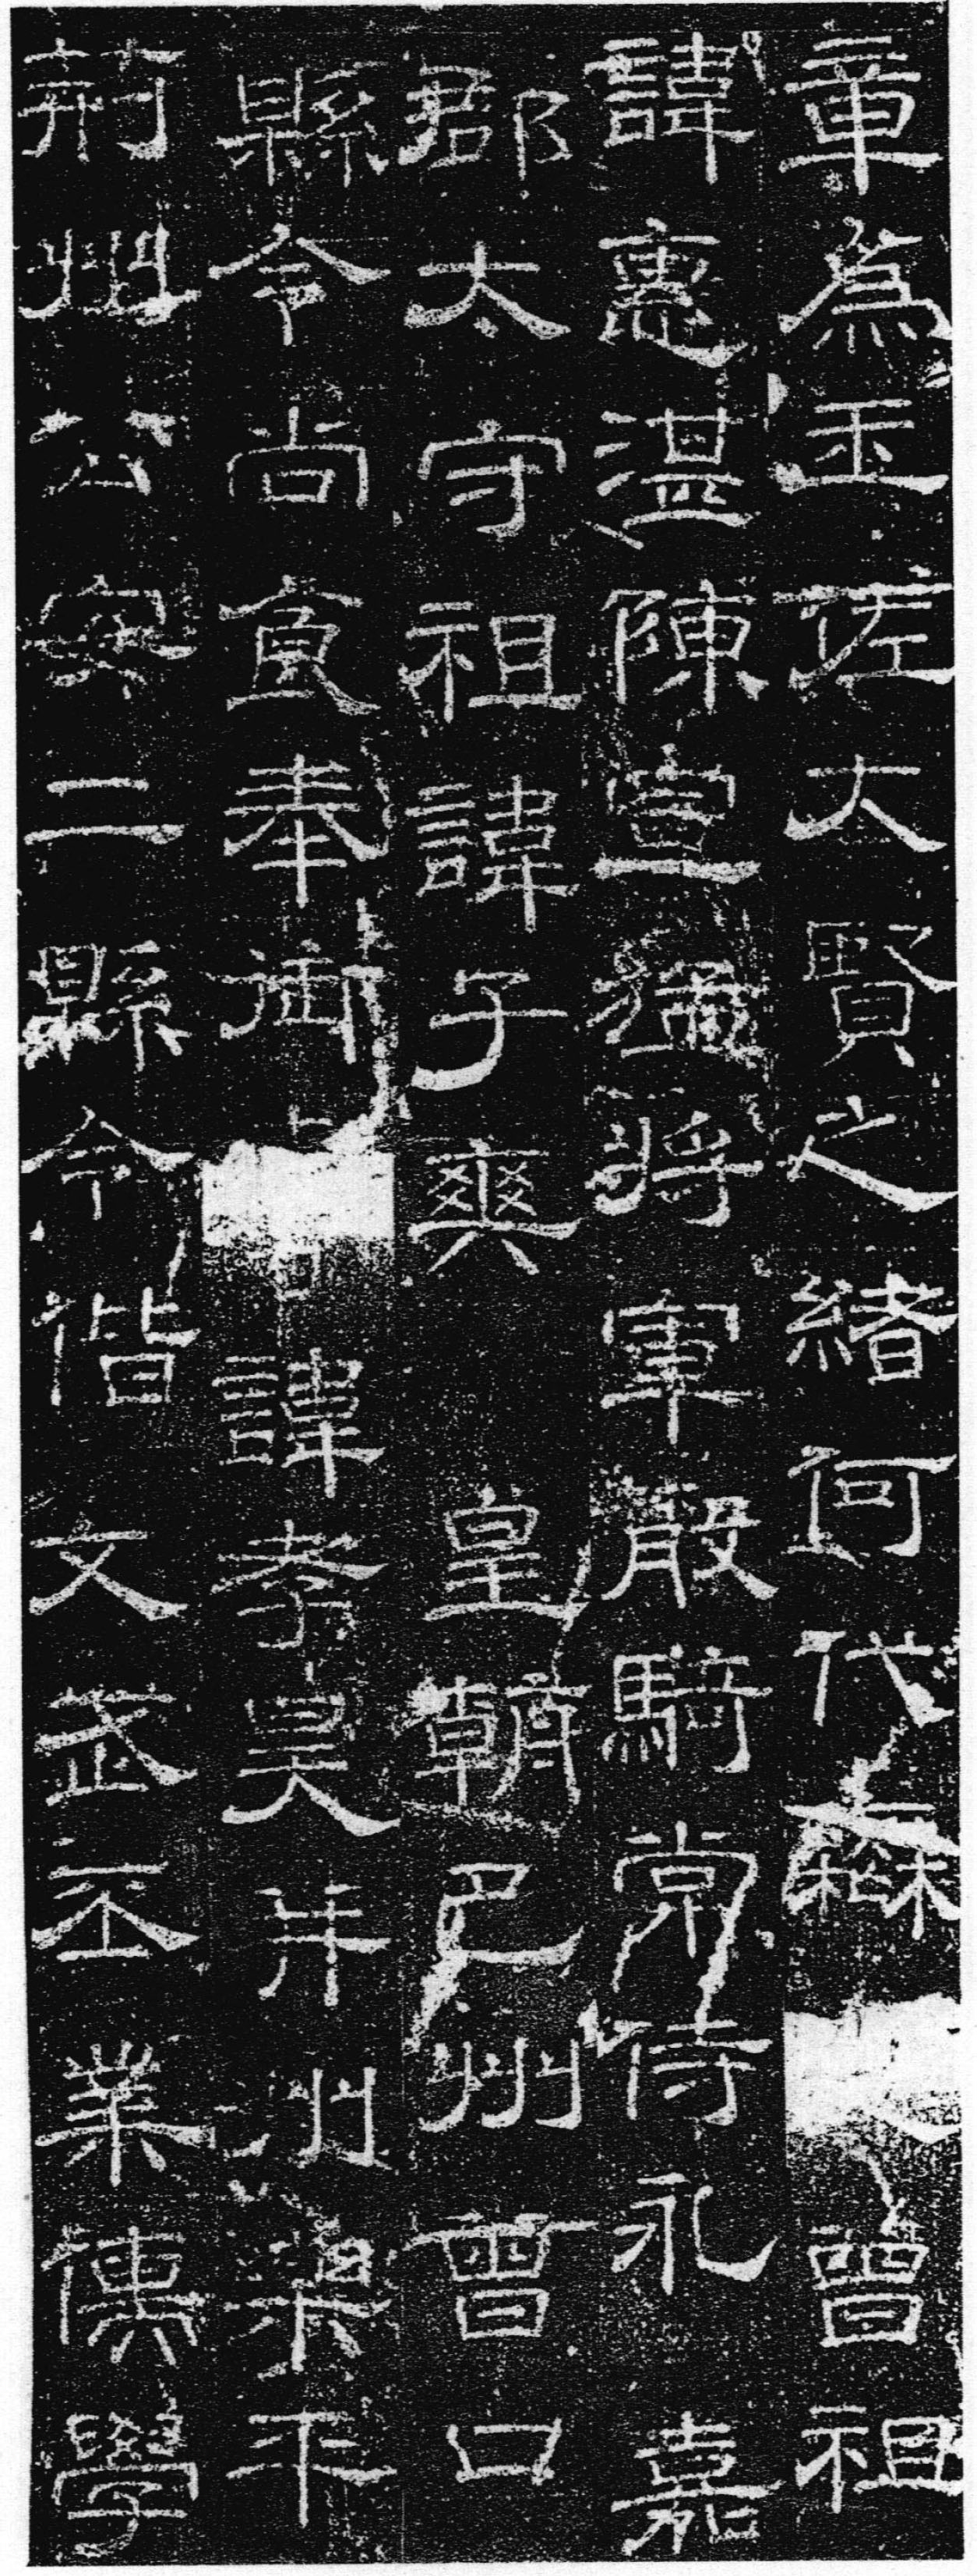 章為王佐大賢之緒何代無曾祖
諱惠湛陳宣猛將軍散騎常侍永嘉
郡太守祖諱子爽皇朝巴州曾口
縣令尚食奉御諱孝昊并州樂平
荊州公安二縣令偕文武丕業儒學